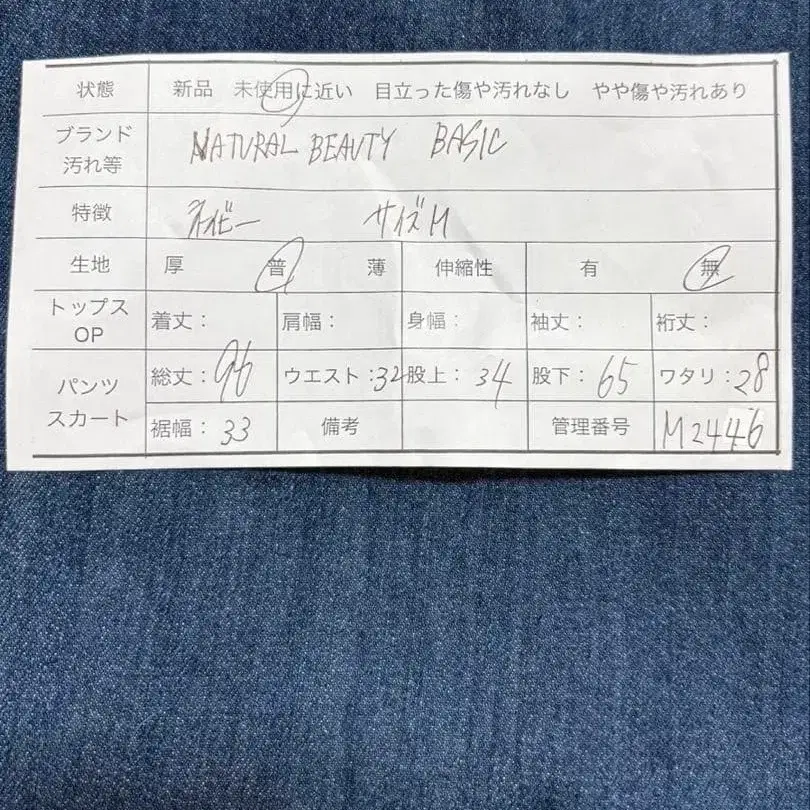 状態 新品 未使用に近い 目立った傷や汚れなし やや傷や汚れあり
ブランド
汚れ等
NATURAL BEAUTY BASIC
特徴 ネイビー サイズM
生地 厚 普 薄 伸縮性 有 無
トップス
OP
着丈: 肩幅: 身幅: 袖丈: 裄丈:
パンツ
スカート
総丈:96 ウエスト:32 股上:34 股下:65 ワタリ:28
裾幅:33 備考 管理番号 M2446